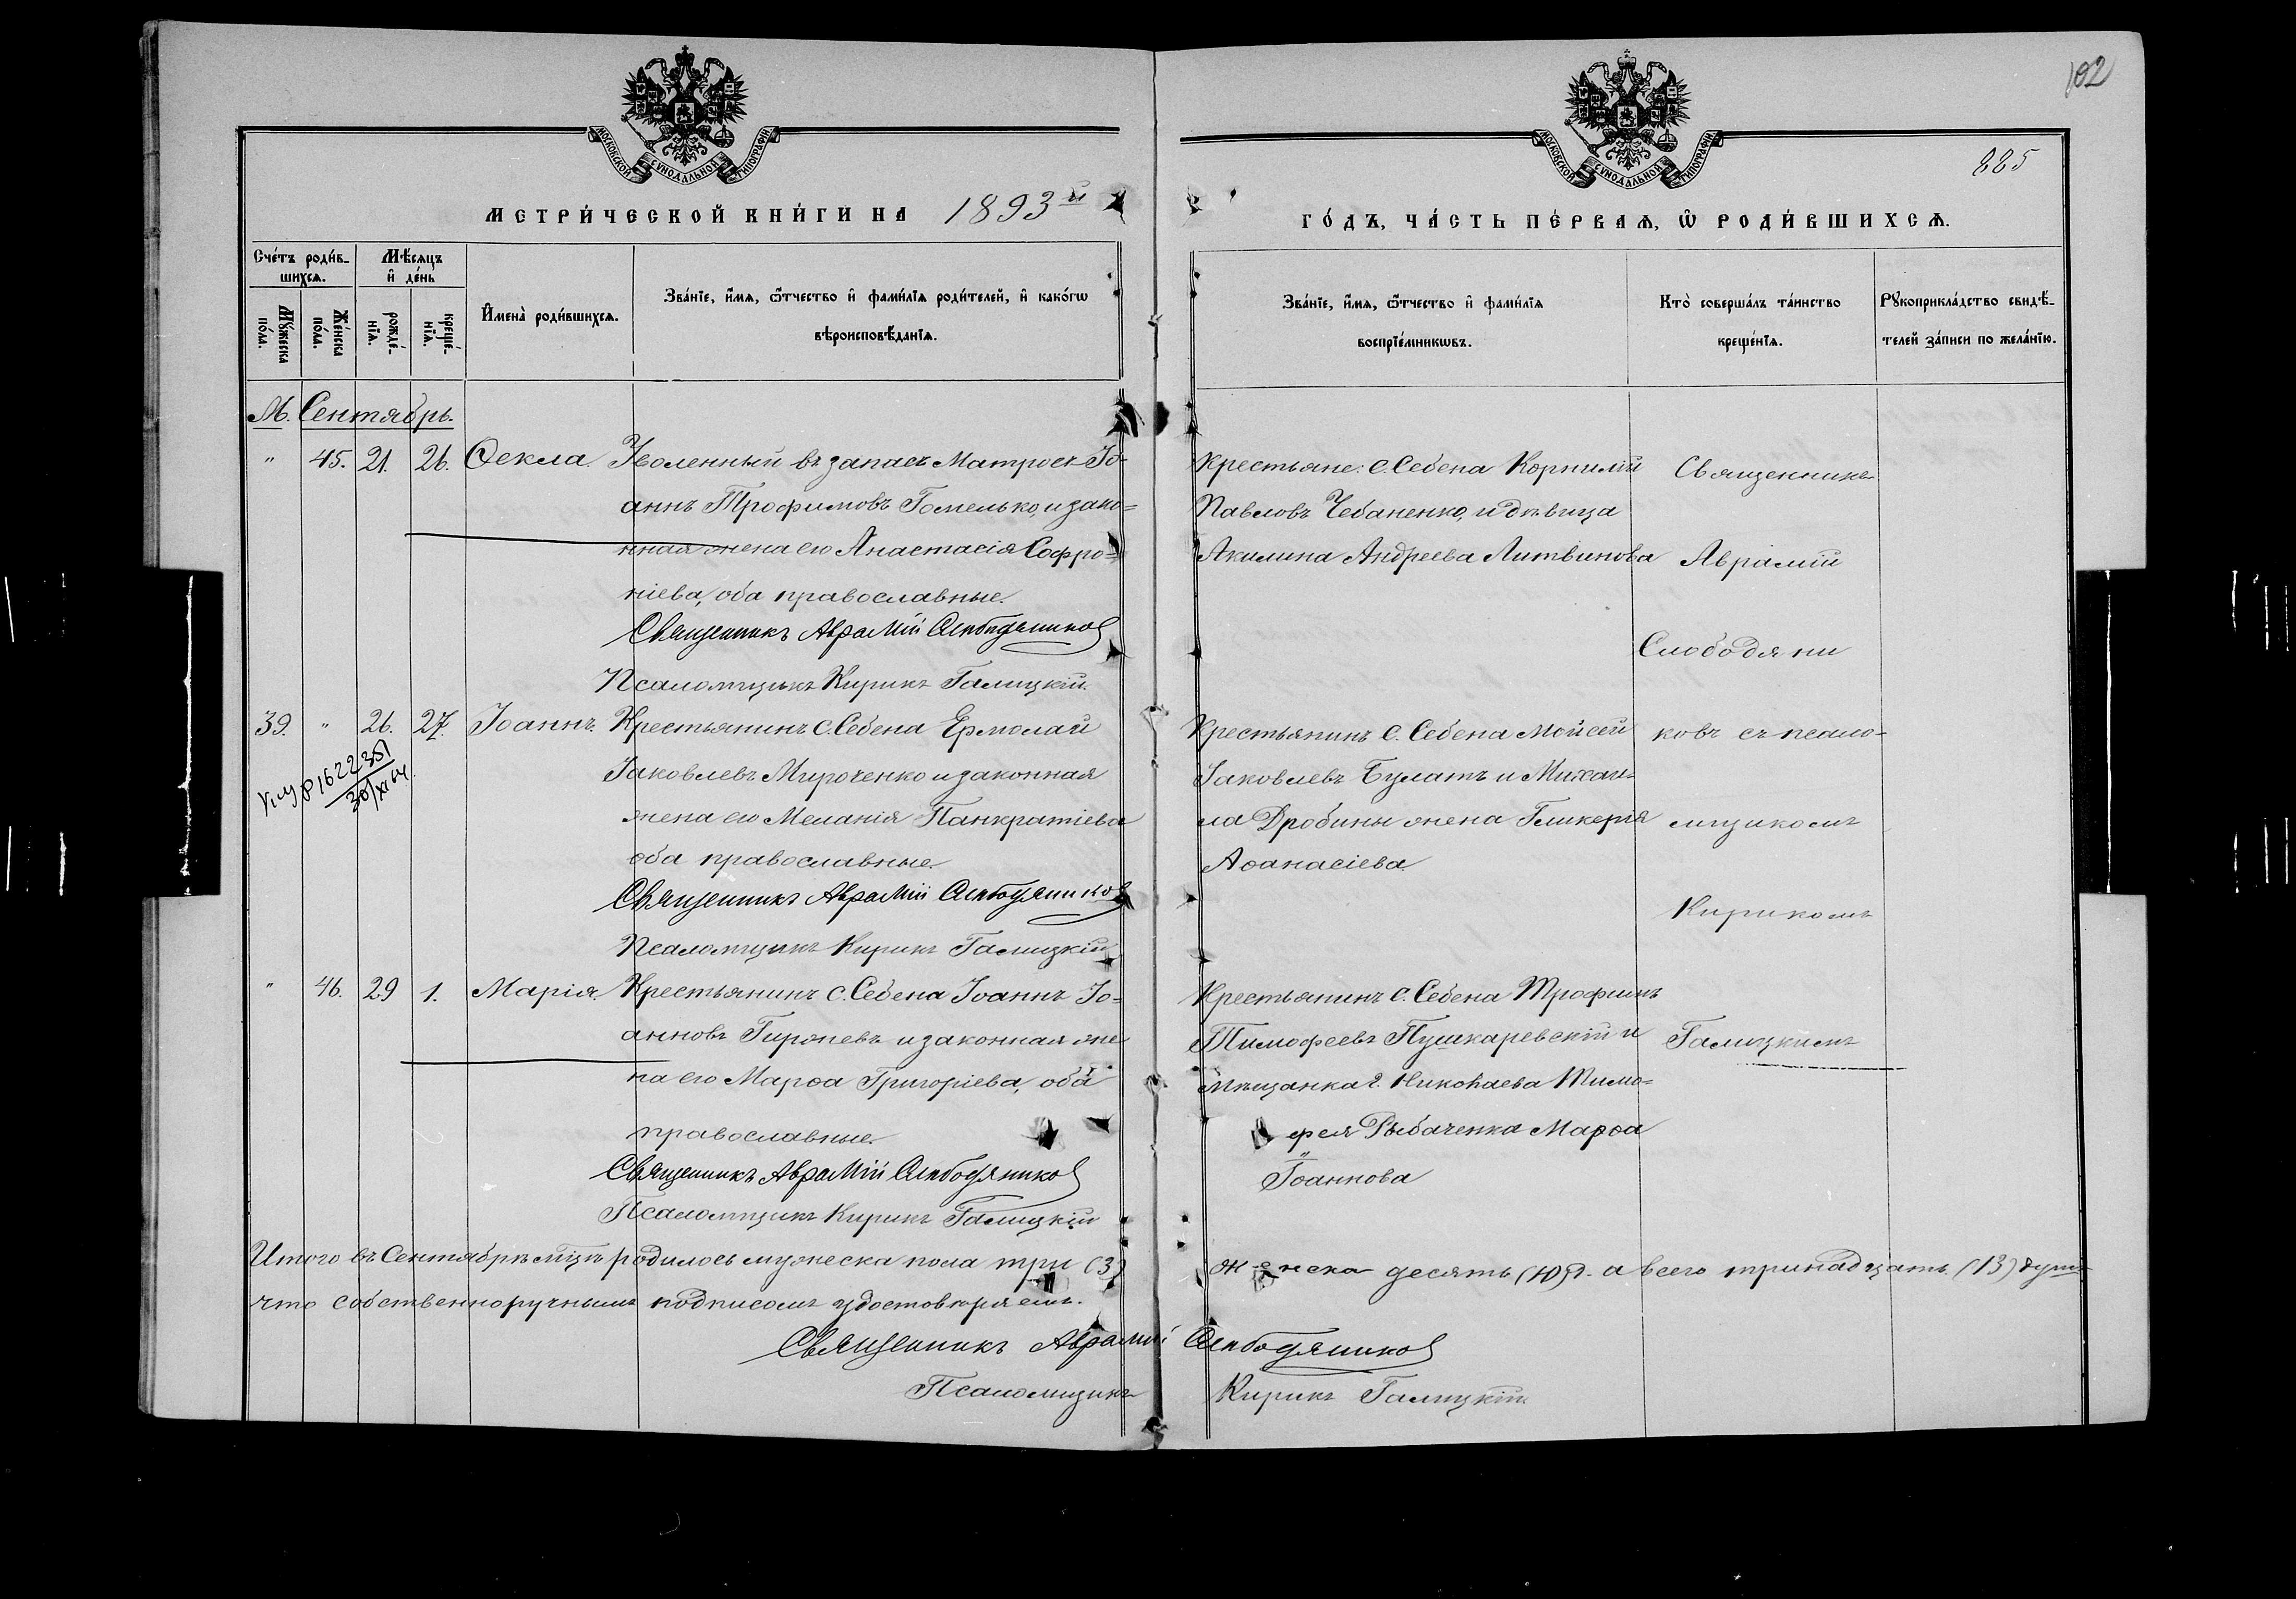 102
885
МОСКОВСКОЙ СѴНОДАЛЬНОЙ ТИПОГРАФІИ
МОСКОВСКОЙ СѴНОДАЛЬНОЙ ТИПОГРАФІИ
МЕТРИ́ЧЕСКОЙ КНИ́ГИ НА 1893й
ГО́ДЪ, ЧА́СТЬ ПЕ́РВАѦ, Ѿ РОДИ́ВШИХСѦ.
Сче́тъ роди́в-
шихсѧ.
Мꙋ́жеска по́ла.
Же́нска по́ла.
Мѣ́сяцъ
и҆ де́нь
рожде́-
нїѧ.
креще́-
нїѧ.
И҆мена̀ роди́вшихсѧ.
Зва́нїе, и҆́мѧ, ѻ҆́тчество и҆ фами́лїѧ роди́телей, и҆ како́гѡ
вѣроисповѣ́данїѧ.
Зва́нїе, и҆́мѧ, ѻ҆́тчество и҆ фами́лїѧ
воспрїе́мникѡвъ.
Кто̀ соверша́лъ та́инство
креще́нїѧ.
Рꙋкоприкла́дство свидѣ́-
телей за́писи по жела́нїю.
М. Сентябрь.
" 45. 21. 26. Ѳекла. Уволенный въ запасъ Матросъ Іо-
аннъ Трофимовъ Гомелько, и зако=
нная жена его Анастасія Софро=
ніева, оба православные.
Священникъ Аврамій Слободяников
Псаломщикъ Кирикъ Галицкій.
Крестьяне: с. Себена Корнилій
Павловъ Чебаненко, и дѣвица
Акилина Андреева Литвинова
Священникъ
Аврамій
Слободяни
ковъ съ псало-
мщикомъ
Кирикомъ
Галицкимъ
39. " 26. 27. Іоаннъ. Крестьянинъ с. Себена Ермолай
Іаковлевъ Мироченко и законная
жена его Меланія Панкратіева
оба православные.
Священникъ Аврамій Слободяников
Псаломщикъ Кирикъ Галицкій
Крестьянинъ с. Себена Мойсей
Іаковлевъ Булатъ и Михаи-
ла Дробины жена Гликерія
Аѳанасіева
" 46. 29 1. Марія. Крестьянинъ с. Себена Іоаннъ Іо=
анновъ Гиряневъ и законная же
на его Марѳа Григоріева, оба
православные.
Священникъ Аврамій Слободяников
Псаломщикъ Кирикъ Галицкій
Крестьянинъ с. Себена Трофимъ
Тимофеевъ Пушкаревскій и
мѣщанка г. Николаева Тимо=
фея Рыбаченка Марѳа
Іоаннова
Итого въ Сентябрѣ мцѣ родилось мужеска пола три (3)
женска десять (10) а всего тринадцать (13) душъ
что собственноручнымъ подписомъ удостовѣряемъ.
Священникъ Аврамій Слободяников
Псаломщикъ Кирикъ Галицкій.